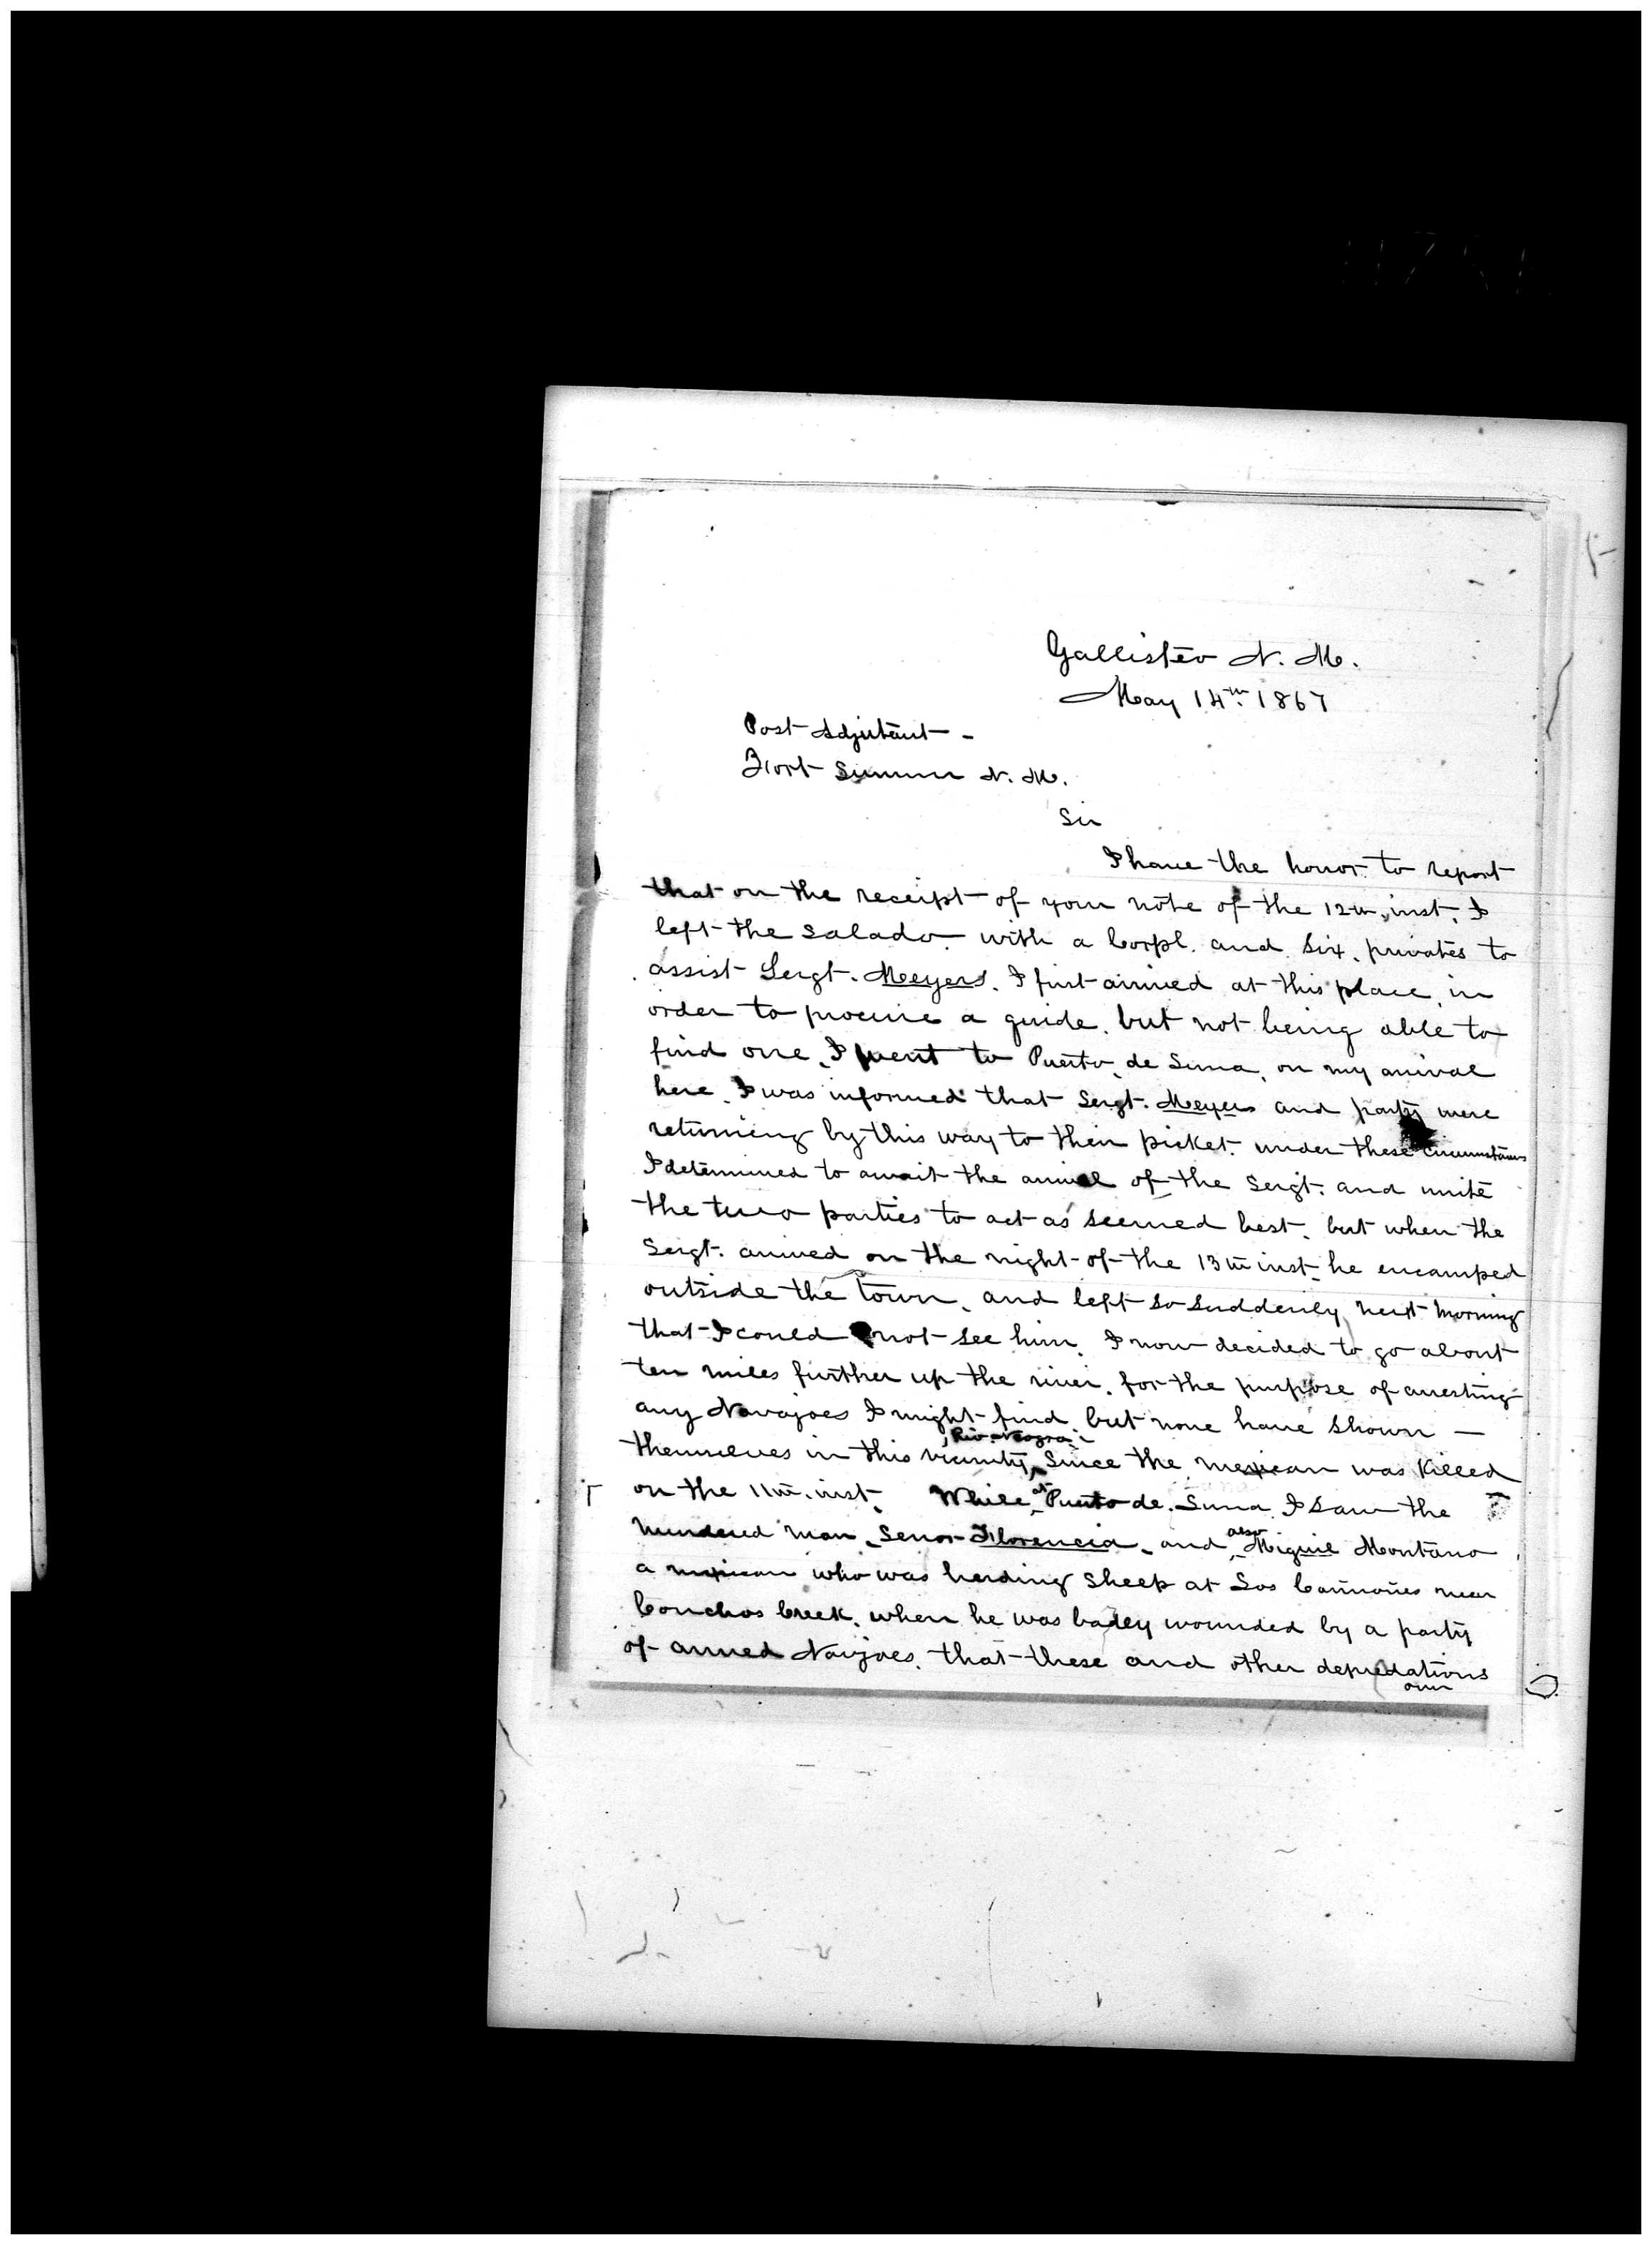 Gallisteo N. M.
May 14th. 1867
Post Adjutant -
Fort Sumner N. M.
Sir
I have the honor to report
that on the receipt of your note of the 12th. inst. I
left the Salado with a Corpl. and six privates to
assist Sergt. Meeyers. I first arrived at this place, in
order to procure a guide, but not being able to
find one, I went to Puerto de Luna, on my arrival
here, I was informed that Sergt. Meeyers and party were
returning by this way to their picket. under these circumstances
I determined to await the arrival of the Sergt. and unite
the two parties to act as seemed best, but when the
Sergt. arrived on the night of the 13th inst. he encamped
outside the town, and left so suddenly next morning
that I could not see him. I now decided to go about
ten miles further up the river, for the purpose of arresting
any Navajoes I might find, but none have shown —
themselves in this vicinity, Since the mexican was killed
on the 11th. inst. While at Puerto de Luna I saw the
murdered man, Senor Florencia, and also Miguil Montano
a mexican who was herding sheep at Los
Conchos Creek, when he was badly wounded by a party
of armed Navjoes. that these and other depredations